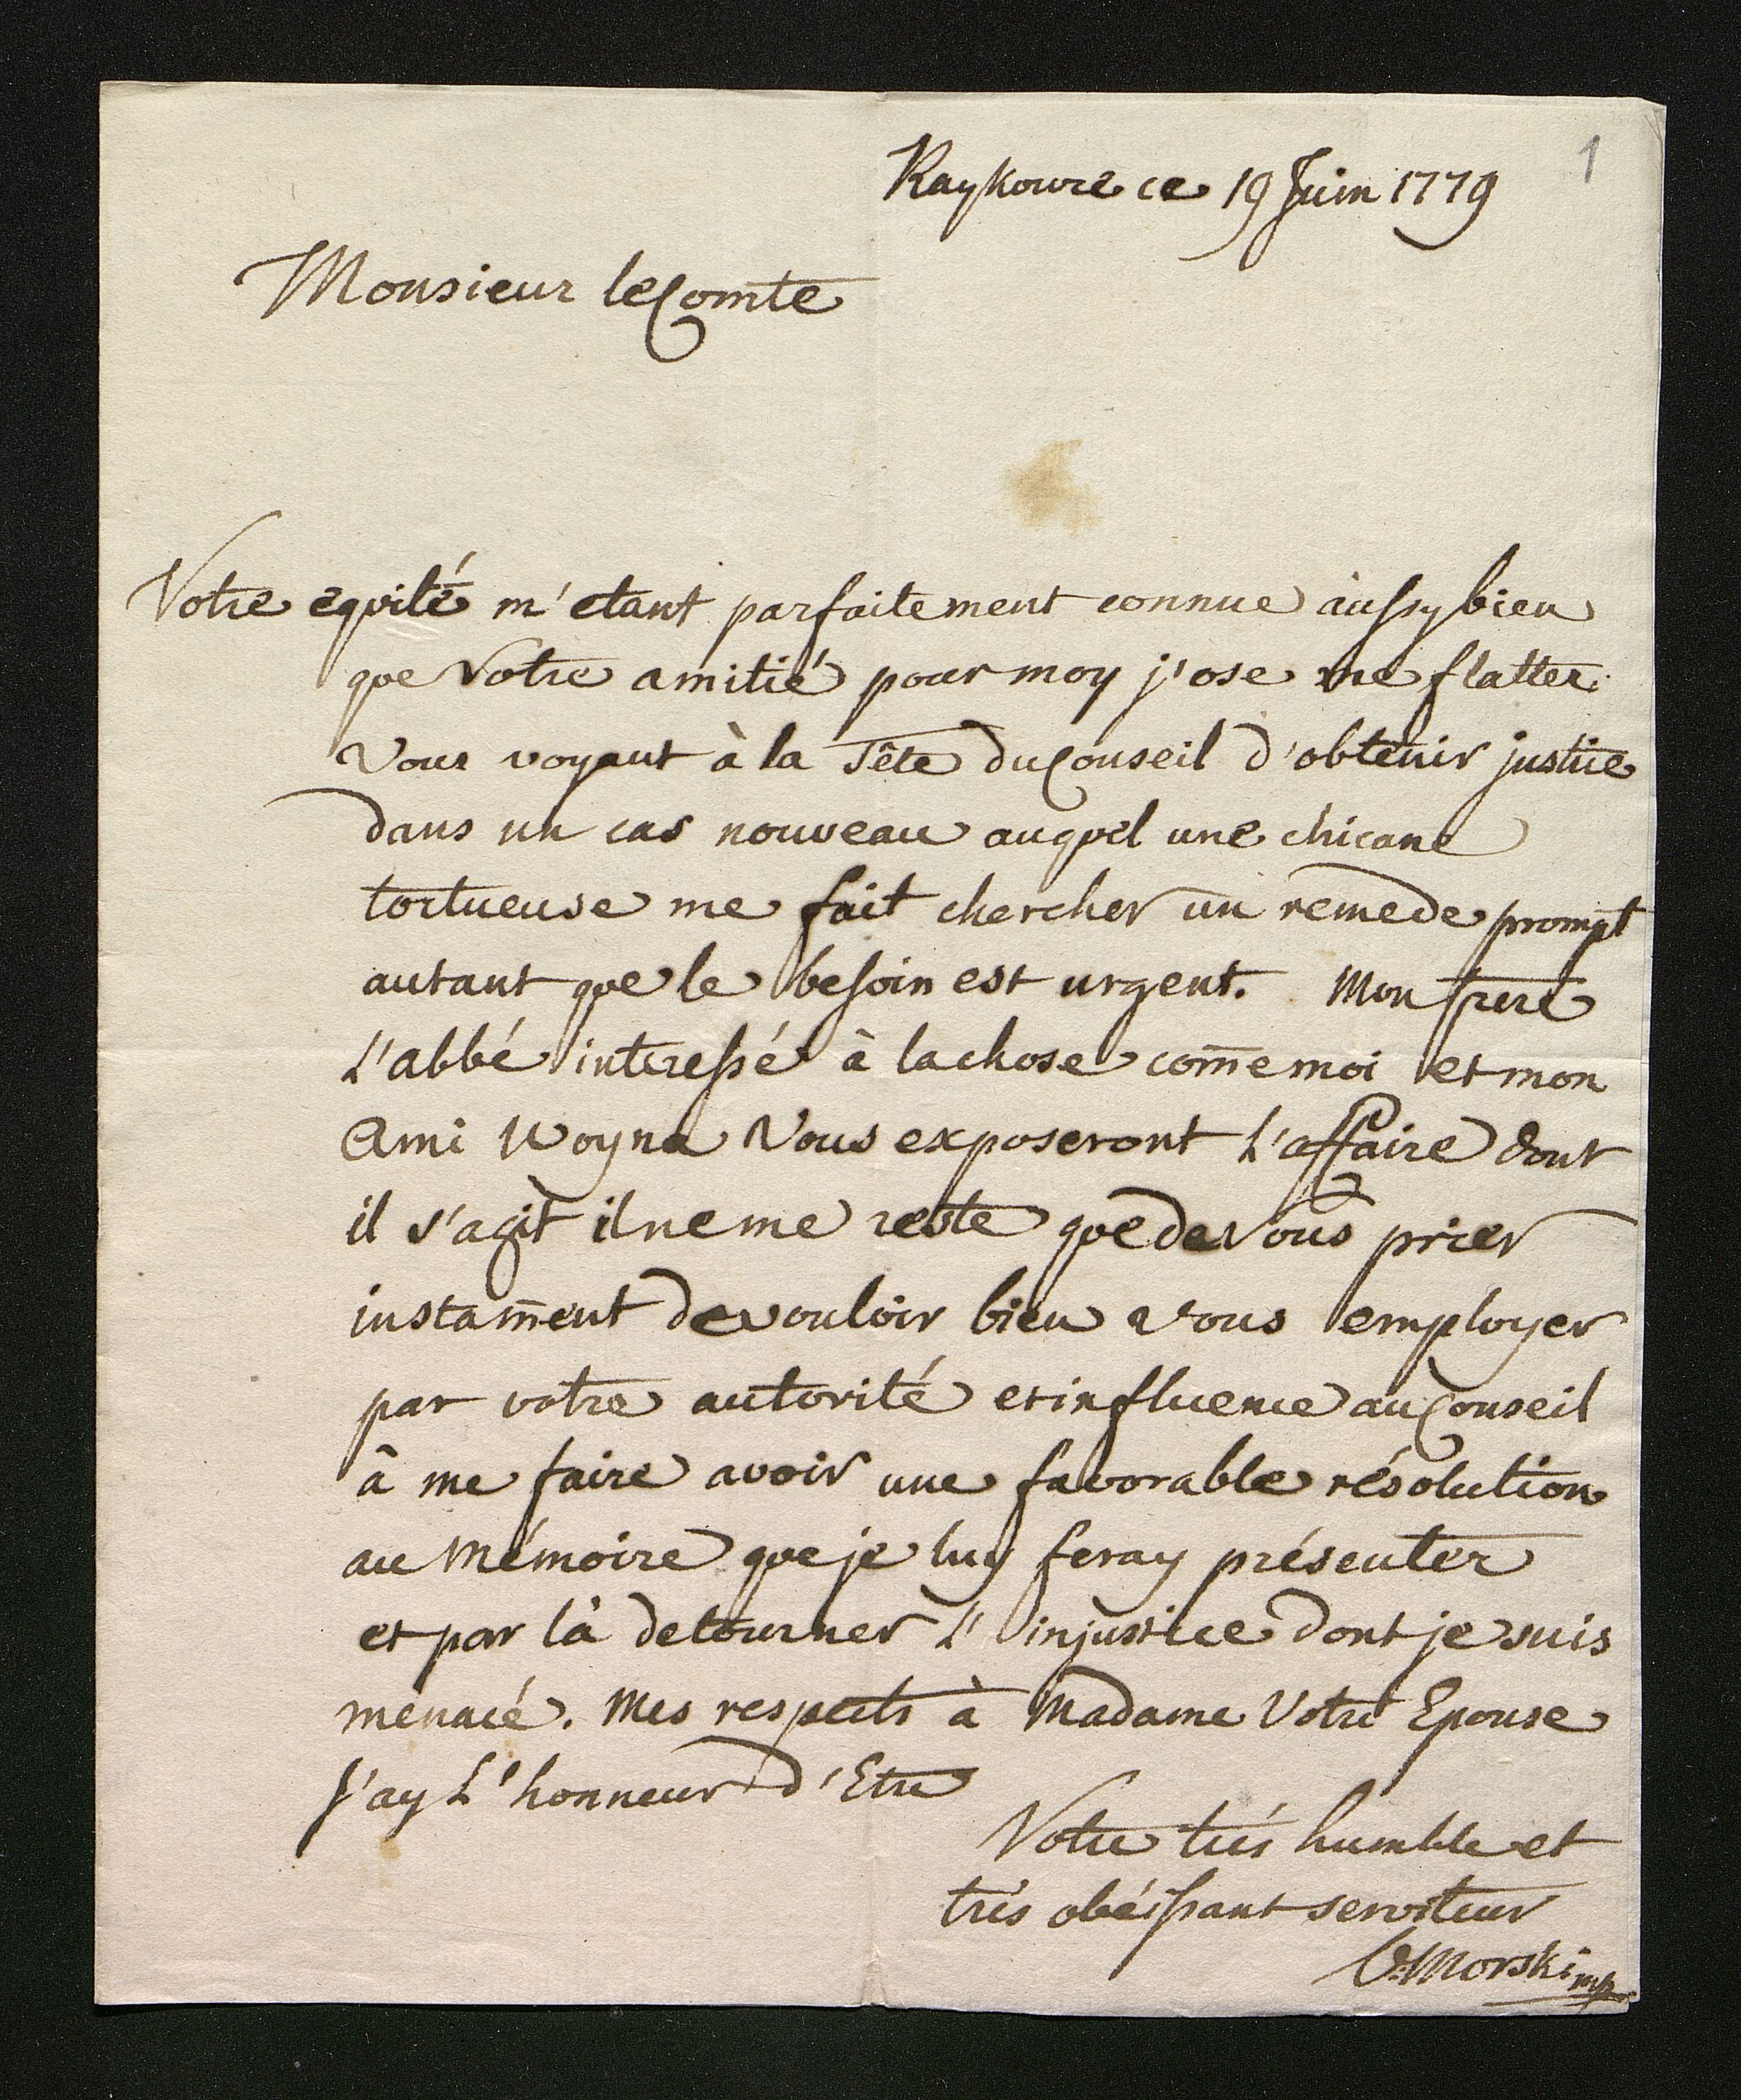 1
Raykowce ce 19 Juin 1779
Monsieur le Comte
Votre equité m'etant parfaitement connue aussy bien
que Votre amitié pour moy j'ose me flatter
Vous voyant à la Tête du Conseil d'obtenir justice
dans un cas nouveau auquel une chicane
tortueuse me fait chercher un remede prompt
autant que le besoin est urgent. Mon frere
L'abbé interessé à la chose com̄e moi et mon
Ami Woyna Vous exposeront L'affaire dont
il s'agit il ne me reste que de Vous prier
instam̄ent de vouloir bien vous employer
par votre autorité et influence au Conseil
à me faire avoir une favorable résolution
au Mémoire que je luy feray présenter
et par là detourner L'injustice dont je suis
menacé. Mes respects à Madame Votre Epouse
J'ay L'honneur d'Etre
Votre trés humble et
trés obéissant serviteur
Morski mp